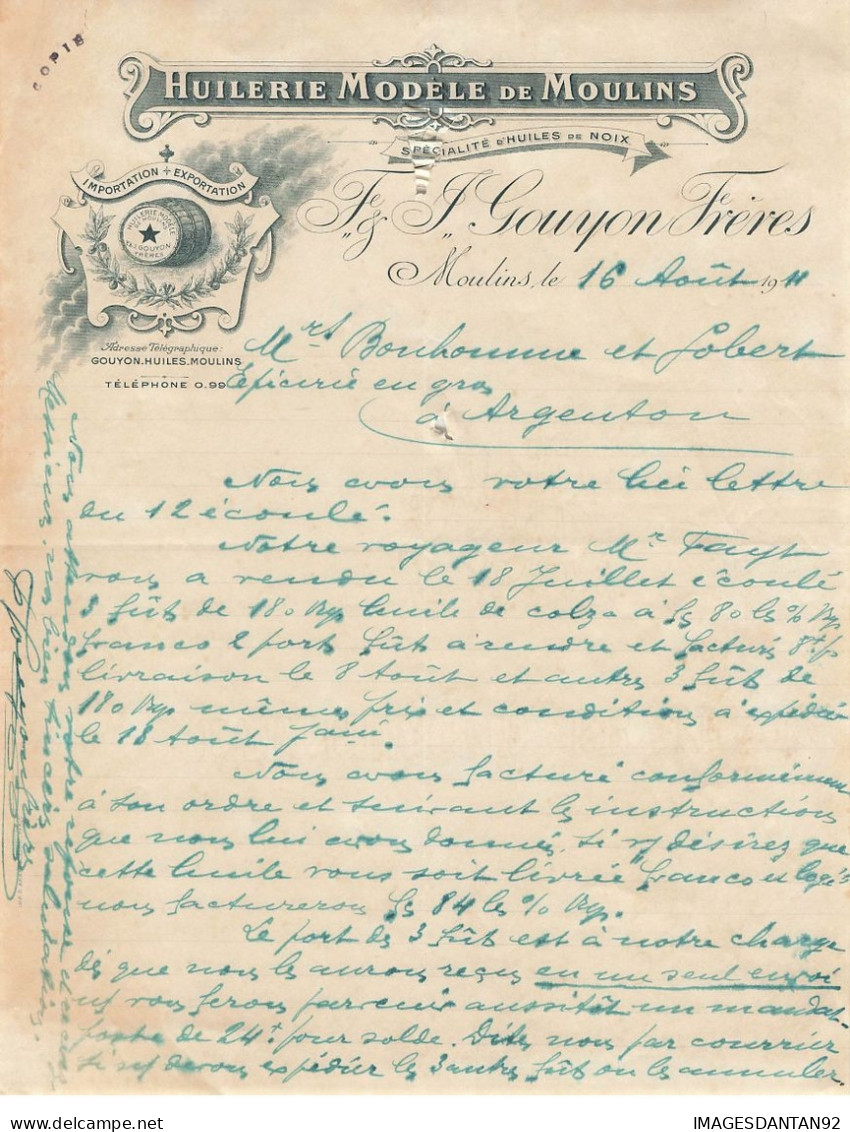 COPIE
HUILERIE MODÈLE DE MOULINS
SPÉCIALITÉ D'HUILES DE NOIX
IMPORTATION + EXPORTATION
HUILERIE-MODÈLE
DE MOULINS
F. & J. GOUYON
FRÈRES
F. & J. Gouyon Frères
Moulins, le 16 Août 1911
Adresse Télégraphique:
GOUYON.HUILES.MOULINS
TÉLÉPHONE 0.99
Mrs Bonhomme et Lobert
Epicerie en gros
à Argenton
Nous avons votre lettre
du 12 écoulé.
Notre voyageur Mr Fayt
vous a vendu le 18 Juillet écoulé
3 fûts de 180 kgs huile de colza à fs 80 les % kgs
franco 2 ports fûts à rendre et facturés 8f p
livraison le 8 Août et autres 3 fûts de
180 kgs mêmes prix et conditions à expédier
le 18 Août
Nous avons facturé conformément
à son ordre et suivant les instructions
que nous lui avons données, si vs désirez que
cette huile vous soit livrée franco et logée
nous facturerons fs 84 les % kgs.
Le port des 3 fûts est à notre charge
dès que nous les aurons reçus en un seul envoi
ns vous ferons parvenir aussitôt un mandat-
poste de 24f pour solde. Dites nous par courrier
si ns devons expédier les 3 autres fûts ou les annuler.
Nous attendons votre réponse
Messieurs, nos bien sincères salutations.
Gouyon frères
IMAGESDANTAN92